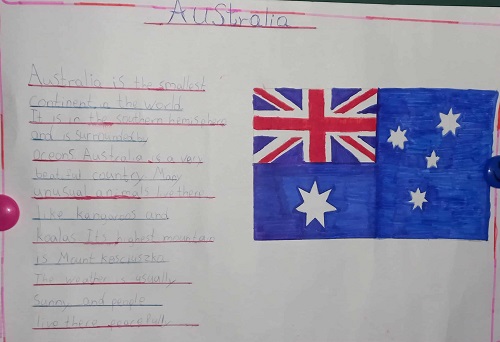 Australia
Australia is the smallest
continent in the world
It is in the southern hemisphere
and is surrounded by
oceans Australia is a very
beatiful country Many
unusual animals live there
like kangaroos and
koalas It's highest mountain
is Mount Kosciuszko
The weather is usually
sunny and people
live there peacefully